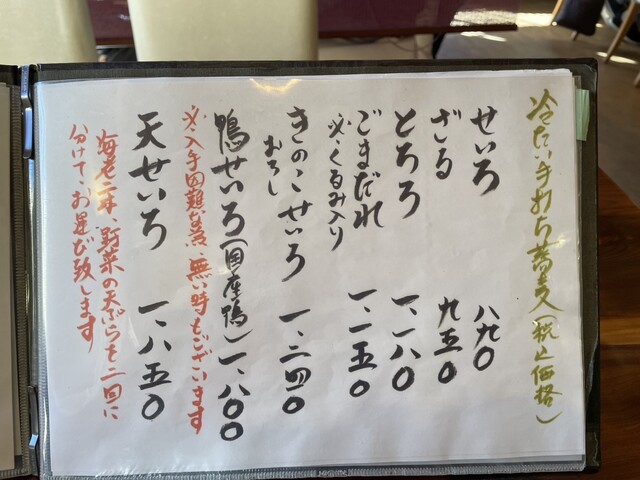 冷たい手打ち蕎麦(税込価格)
せいろ 八九〇
ざる 九五〇
とろろ 一、一八〇
ごまだれ 一、一五〇
※くるみ入り
きのこせいろ 一、二四〇
おろし
鴨せいろ(国産鴨) 一、八〇〇
※入手困難な為、無い時もございます
天せいろ 一、八五〇
海老二本、野菜の天ぷらを二回に
分けて、お運び致します